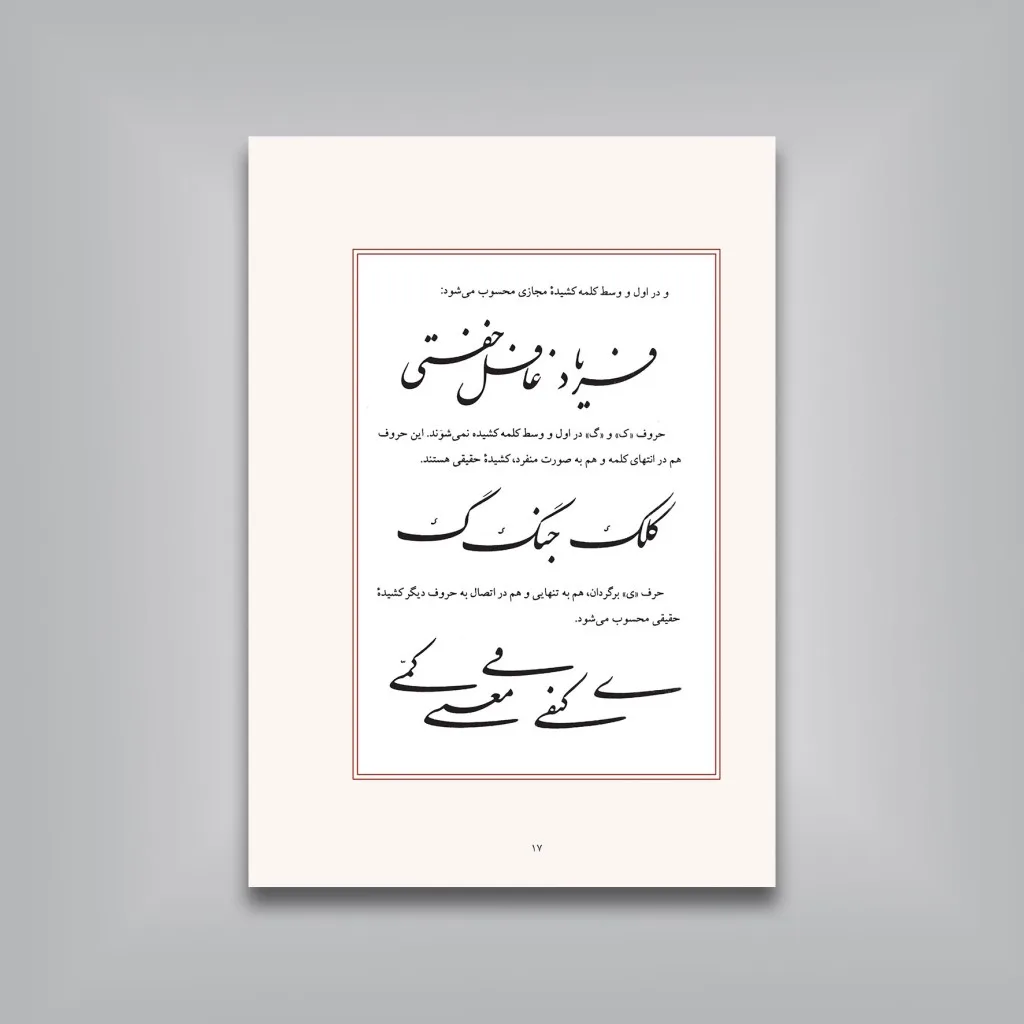 و در اول و وسط کلمه کشیدهٔ مجازی محسوب می‌شود:
فریاد غافل خفتی
حروف «ک» و «گ» در اول و وسط کلمه کشیده نمی‌شوَند. این حروف
هم در انتهای کلمه و هم به صورت منفرد، کشیدهٔ حقیقی هستند.
کلک جنگ گ
حرف «ی» برگردان، هم به تنهایی و هم در اتصال به حروف دیگر کشیدهٔ
حقیقی محسوب می‌شود.
ے فی کمّی
کنفی معنی
۱۷